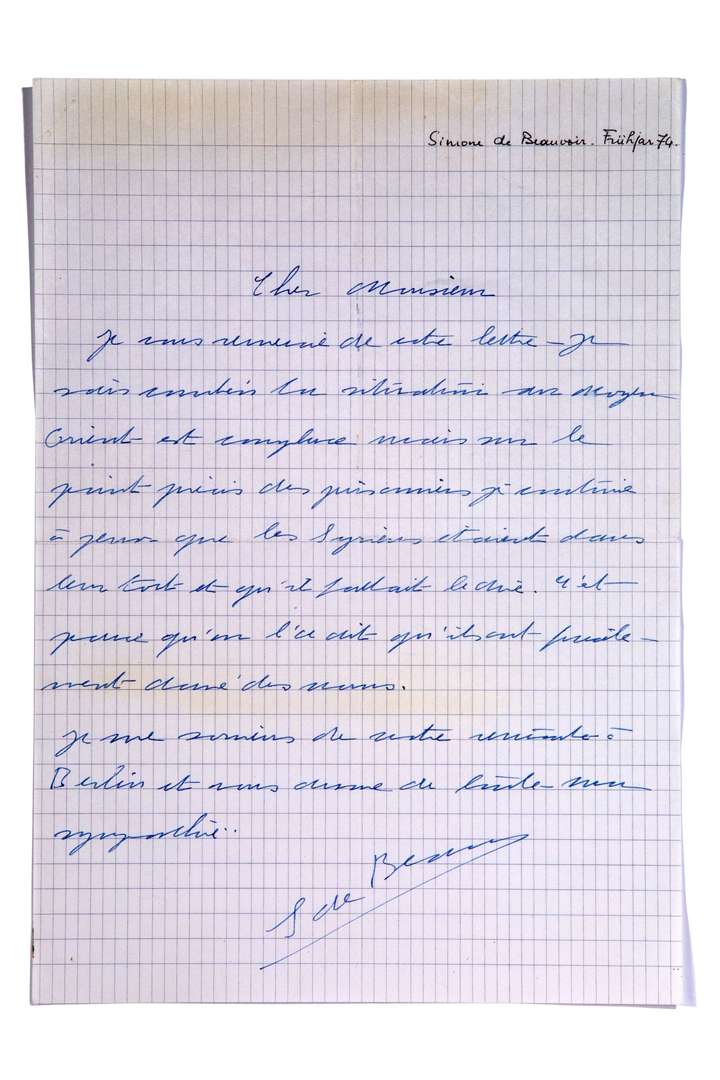 Simone de Beauvoir. Frühjar 74.
Cher Monsieur
je vous remercie de votre lettre – je
sais combien la situation au Moyen
Orient est complexe mais sur le
point précis des prisonniers je continue
à penser que les Syriens étaient dans
leur tort et qu'il fallait le dire. C'est
parce qu'on l'a dit qu'ils ont finale-
ment donné des noms.
je me souviens de notre rencontre à
Berlin et vous donne de toute mon
sympathie.
S de Beauvoir